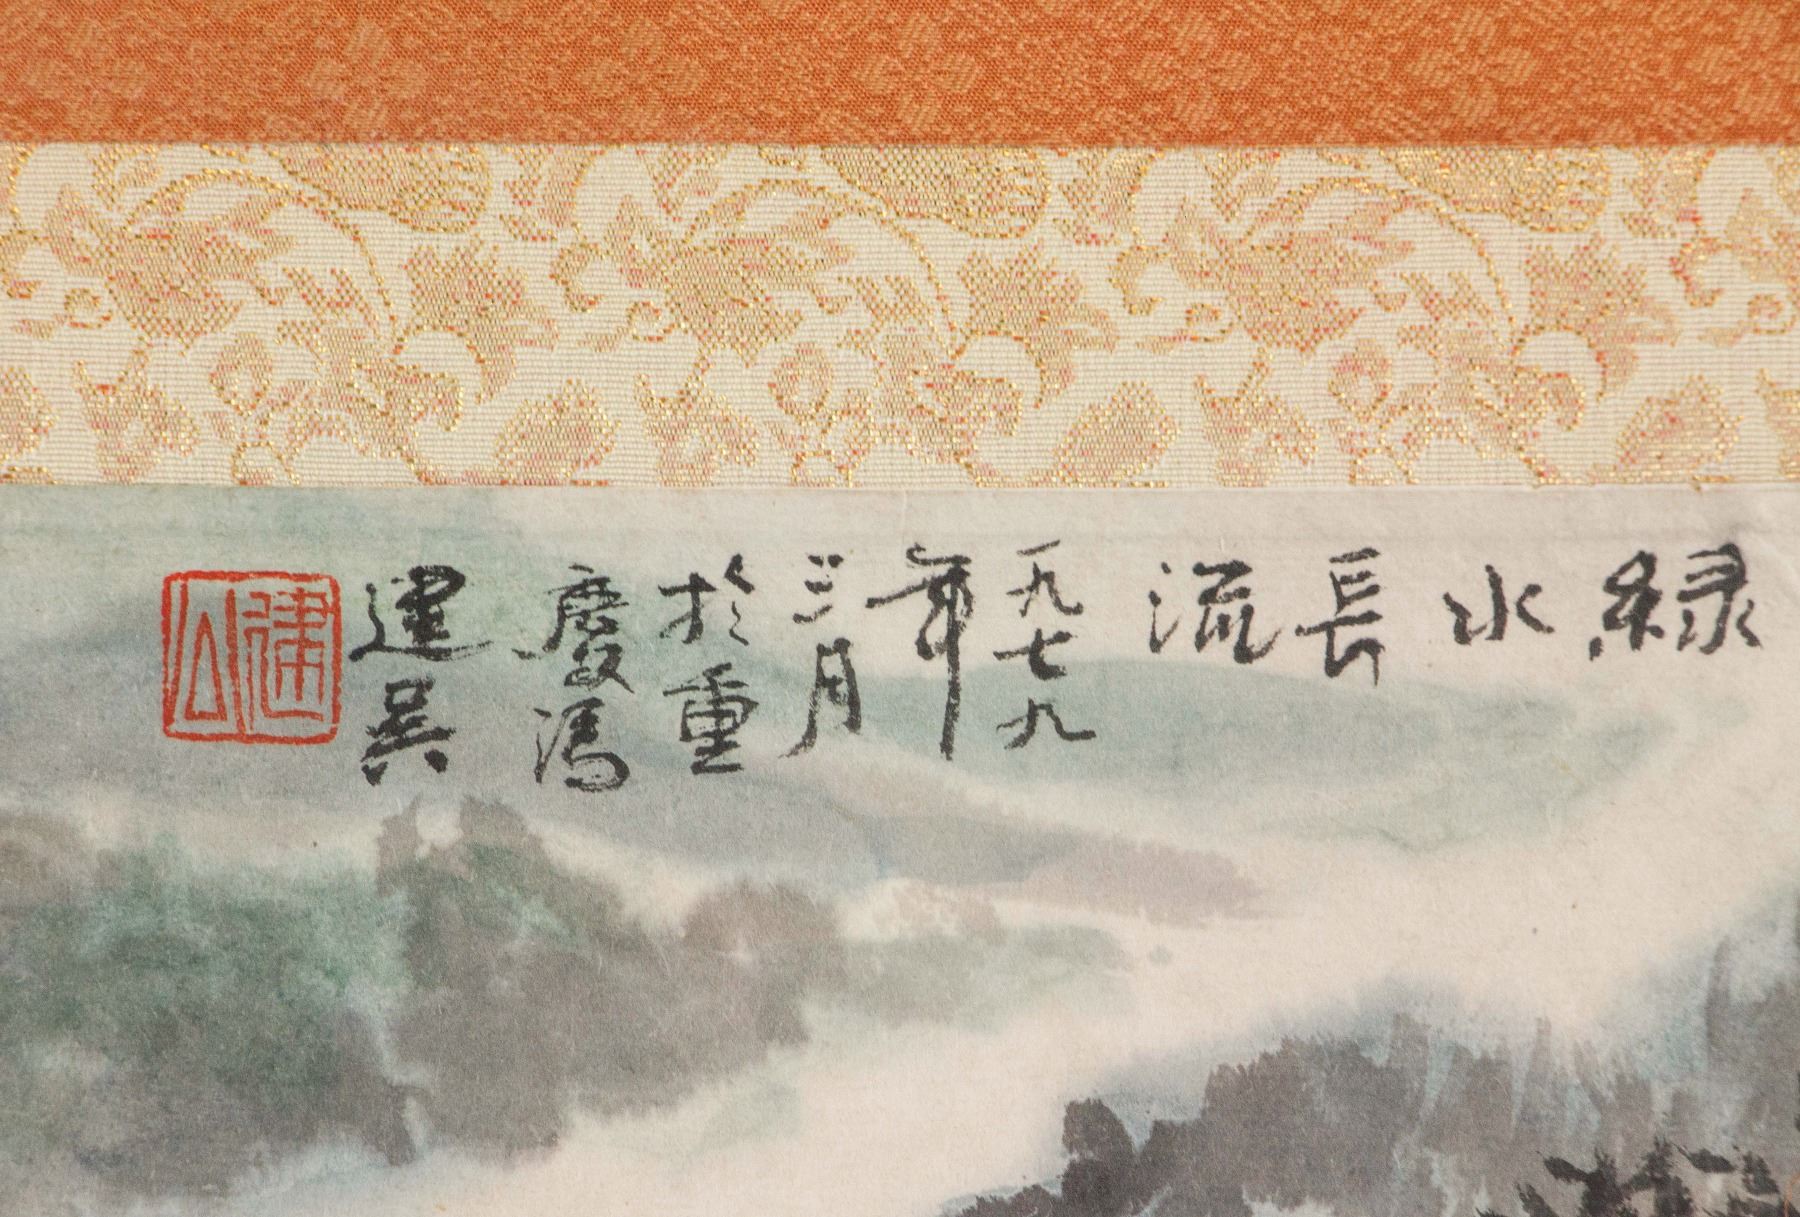 綠水長流
一九七九
年
三月
於重
慶馮
建吳
建吳